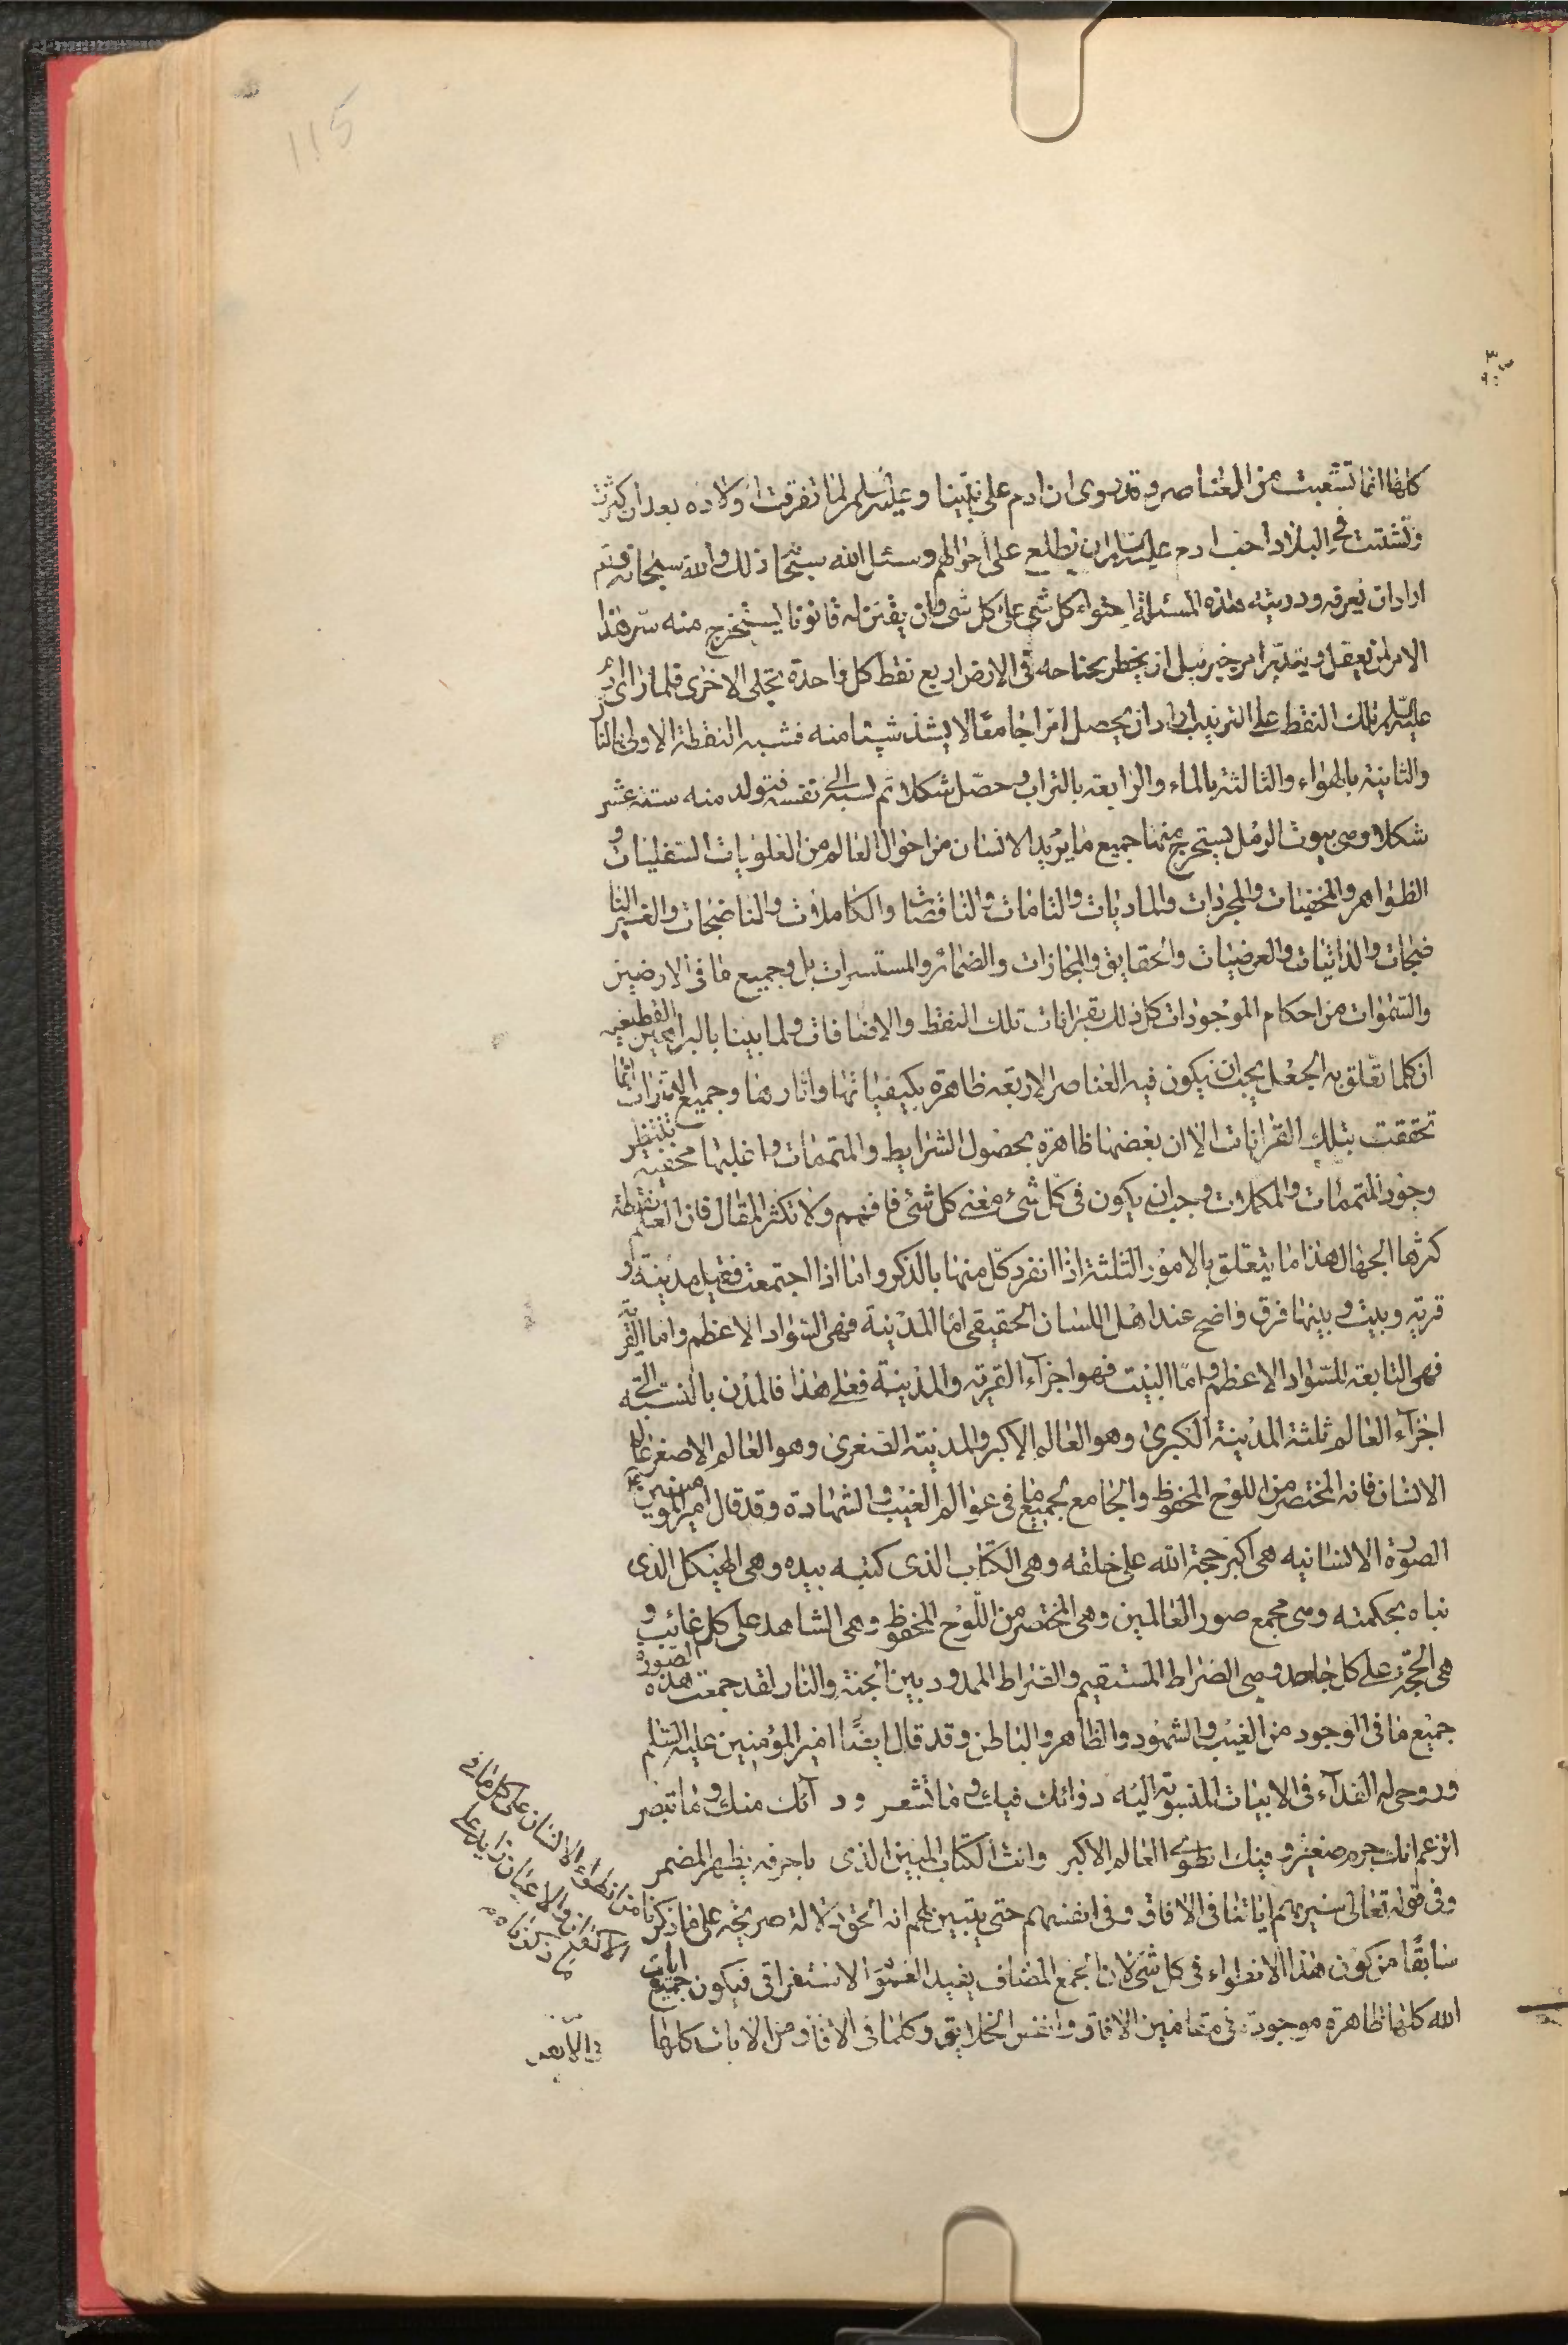 115
كلها انما تشعبت من العناصر وقد روى ان ادم على نبينا وعليه السلم لما تفرقت اولاده بعد ان كثرت
وتشتت فى البلاد احب ادم عليه السلم ان يطلع على احوالهم وسئل الله سبحانه ذلك والله سبحانه قد
اراد ان يعرفه ودريته هذه المسئلة احتواء كل شى على كل شى وان يقنن له قانونا ليستخرج منه سر هذا
الامر لمن يعقل ويتدبر امر جبرئيل ان يخطر بجناحه فى الارض اربع نقط كل واحدة تجلى الاخرى فلما راى ادم
عليه السلم تلك النقط على الترتيب اراد ان يحصل امرا جامعا لا يشذ شيئا منه فشبه النقطة الاولى بالنار
والثانية بالهواء والثالثة بالماء والرابعة بالتراب وحصل شكلا ثم نسبه الى نفسه فتولد منه ستة عشر
شكلا وهى بيوت الرمل يستخرج منها جميع ما يريد الانسان من احوال العالم من العلويات السفليات و
الظواهر والمخفيات والمجردات والماديات والتامات والناقصات والكاملات والناضجات والغير النا
ضجات والذاتيات والعرضيات والحقايق والمجازات والضمائر والمستسرات بل وجميع ما فى الارضين
والسموات من احكام الموجودات كل ذلك بقرانات تلك النقط والاضافات ولما بينا بالبراهين القطعيه
ان كلما تعلق به الجعل يجب ان يكون فيه العناصر الاربعه ظاهرة بكيفياتها واثارها وجميع الثمرات انما
تحققت بتلك القرانات الا ان بعضها ظاهرة بحصول الشرايط والمتممات واغلبها مخفيه تنتظر
وجود المتممات والمكملات وجب ان يكون فى كل شئ معنى كل شئ فافهم ولا تكثر المقال فان العلم نقطة
كثرها الجهال هذا ما يتعلق بالامور الثلثة اذا انفرد كل منها بالذكر واما اذا اجتمعت فقيل مدينة و
قرية وبيت وبينها فرق واضح عند اهل اللسان الحقيقى اما المدينة فهى السواد الاعظم واما القرية
فهى التابعة للسواد الاعظم واما البيت فهو اجزاء القرية والمدينة فعلى هذا فالمدن بالنسبة الى
اجزاء العالم ثلثة المدينة الكبرى وهو العالم الاكبر والمدينة الصغرى وهو العالم الاصغر عالم
الانسان فانه المختصر من اللوح المحفوظ والجامع لجميع ما فى عوالم الغيب والشهادة وقد قال امير المومنين ع
الصورة الانسانيه هى اكبر حجة الله على خلقه وهى الكتاب الذى كتبه بيده وهى الهيكل الذى
بناه بحكمته وهى مجمع صور العالمين وهى المختصر من اللوح المحفوظ وهى الشاهد على كل غائب و
هى الحجة على كل جاحد وهى الصراط المستقيم والصراط الممدود بين الجنة والنار لقد جمعت هذه الصورة
جميع ما فى الوجود من الغيب والشهود والظاهر والباطن وقد قال ايضا امير المؤمنين عليه السلم
وروحى له الفداء فى الابيات المنسوبة اليه دوائك فيك وما تشعر ودآئك منك وما تبصر
اتزعم انك جرم صغير وفيك انطوى العالم الاكبر وانت الكتاب المبين الذى باحرفه يظهر المضمر
وفى قوله تعالى سنريهم اياتنا فى الافاق وفى انفسهم حتى يتبين لهم انه الحق دلالة صريحة على ما ذكرنا من انطواء الانسان على كل ما فى
سابقا من كون هذا الانطواء فى كل شئ لان الجمع المضاف يفيد العموم الاستغراقى فيكون جميع ايات
الله كلها ظاهرة موجودة فى مقامين الافاق وانفس الخلايق وكلما فى الافاق من الايات كلها